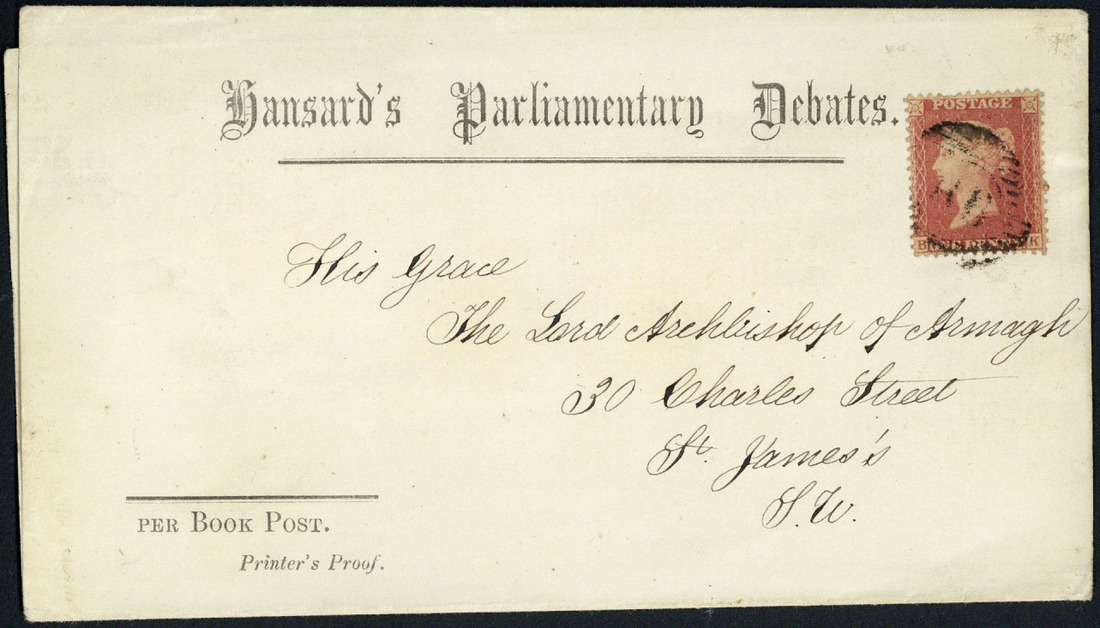 Hansard's Parliamentary Debates.
POSTAGE
B K
His Grace
The Lord Archbishop of Armagh
30 Charles Street
St. James's
S.W.
PER BOOK POST.
Printer's Proof.